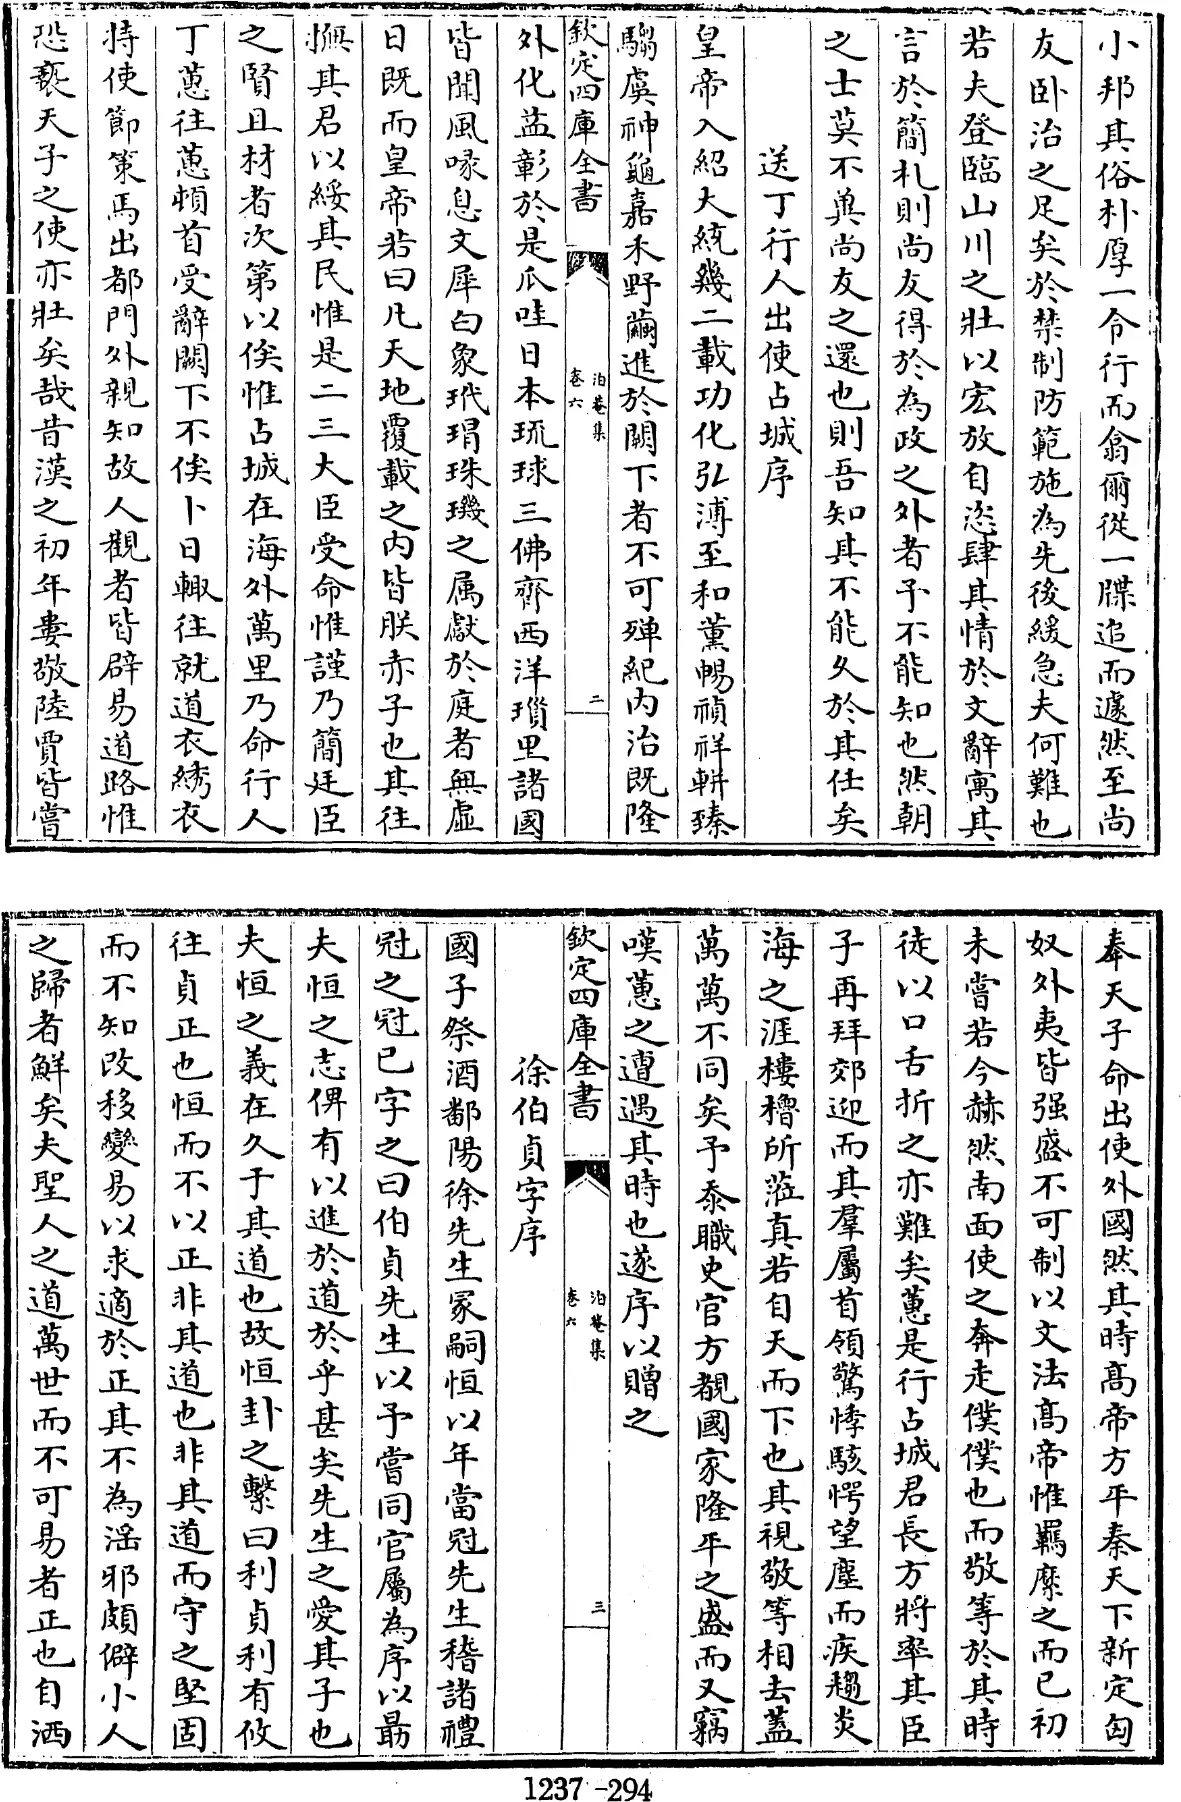 小邦其俗朴厚一令行而翕爾從一牒追而遽然至尚
友卧治之足矣於禁制防範施為先後緩急夫何難也
若夫登臨山川之壯以宏放自恣肆其情於文辭寓其
言於簡札則尚友得於為政之外者予不能知也然朝
之士莫不與尚友之還也則吾知其不能久於其任矣
送丁行人出使占城序
皇帝入紹大統幾二載功化弘溥至和薰暢禎祥輧臻
騶虞神龜嘉禾野繭進於闕下者不可殫紀内治既隆
欽定四庫全書
泊菴集
卷六
二
外化益彰於是爪哇日本琉球三佛齊西洋瑣里諸國
皆聞風喙息文犀白象玳瑁珠璣之属獻於庭者無虛
日既而皇帝若曰凡天地覆載之内皆朕赤子也其往
撫其君以綏其民惟是二三大臣受命惟謹乃簡廷臣
之賢且材者次第以俟惟占城在海外萬里乃命行人
丁蔥往蔥頓首受辭闕下不俟卜日輙往就道衣綉衣
持使節策馬出都門外親知故人觀者皆辟易道路惟
恐褻天子之使亦壯矣哉昔漢之初年婁敬陸賈皆嘗
奉天子命出使外國然其時髙帝方平秦天下新定匈
奴外夷皆强盛不可制以文法髙帝惟羈縻之而已初
未嘗若今赫然南面使之奔走僕僕也而敬等於其時
徒以口舌折之亦難矣蔥是行占城君長方將率其臣
子再拜郊迎而其羣屬首領驚悸駭愕望塵而疾趨炎
海之涯樓櫓所蒞真若自天而下也其視敬等相去蓋
萬萬不同矣予忝職史官方覩國家隆平之盛而又竊
嘆蔥之遭遇其時也遂序以贈之
欽定四庫全書
泊菴集
卷六
三
徐伯貞字序
國子祭酒鄱陽徐先生冢嗣恒以年當冠先生稽諸禮
冠之冠已字之曰伯貞先生以予嘗同官屬為序以朂
夫恒之志俾有以進於道於乎甚矣先生之愛其子也
夫恒之義在久于其道也故恒卦之繫曰利貞利有攸
往貞正也恒而不以正非其道也非其道而守之堅固
而不知改移變易以求適於正其不為滛邪頗僻小人
之歸者鮮矣夫聖人之道萬世而不可易者正也自洒
1237-294